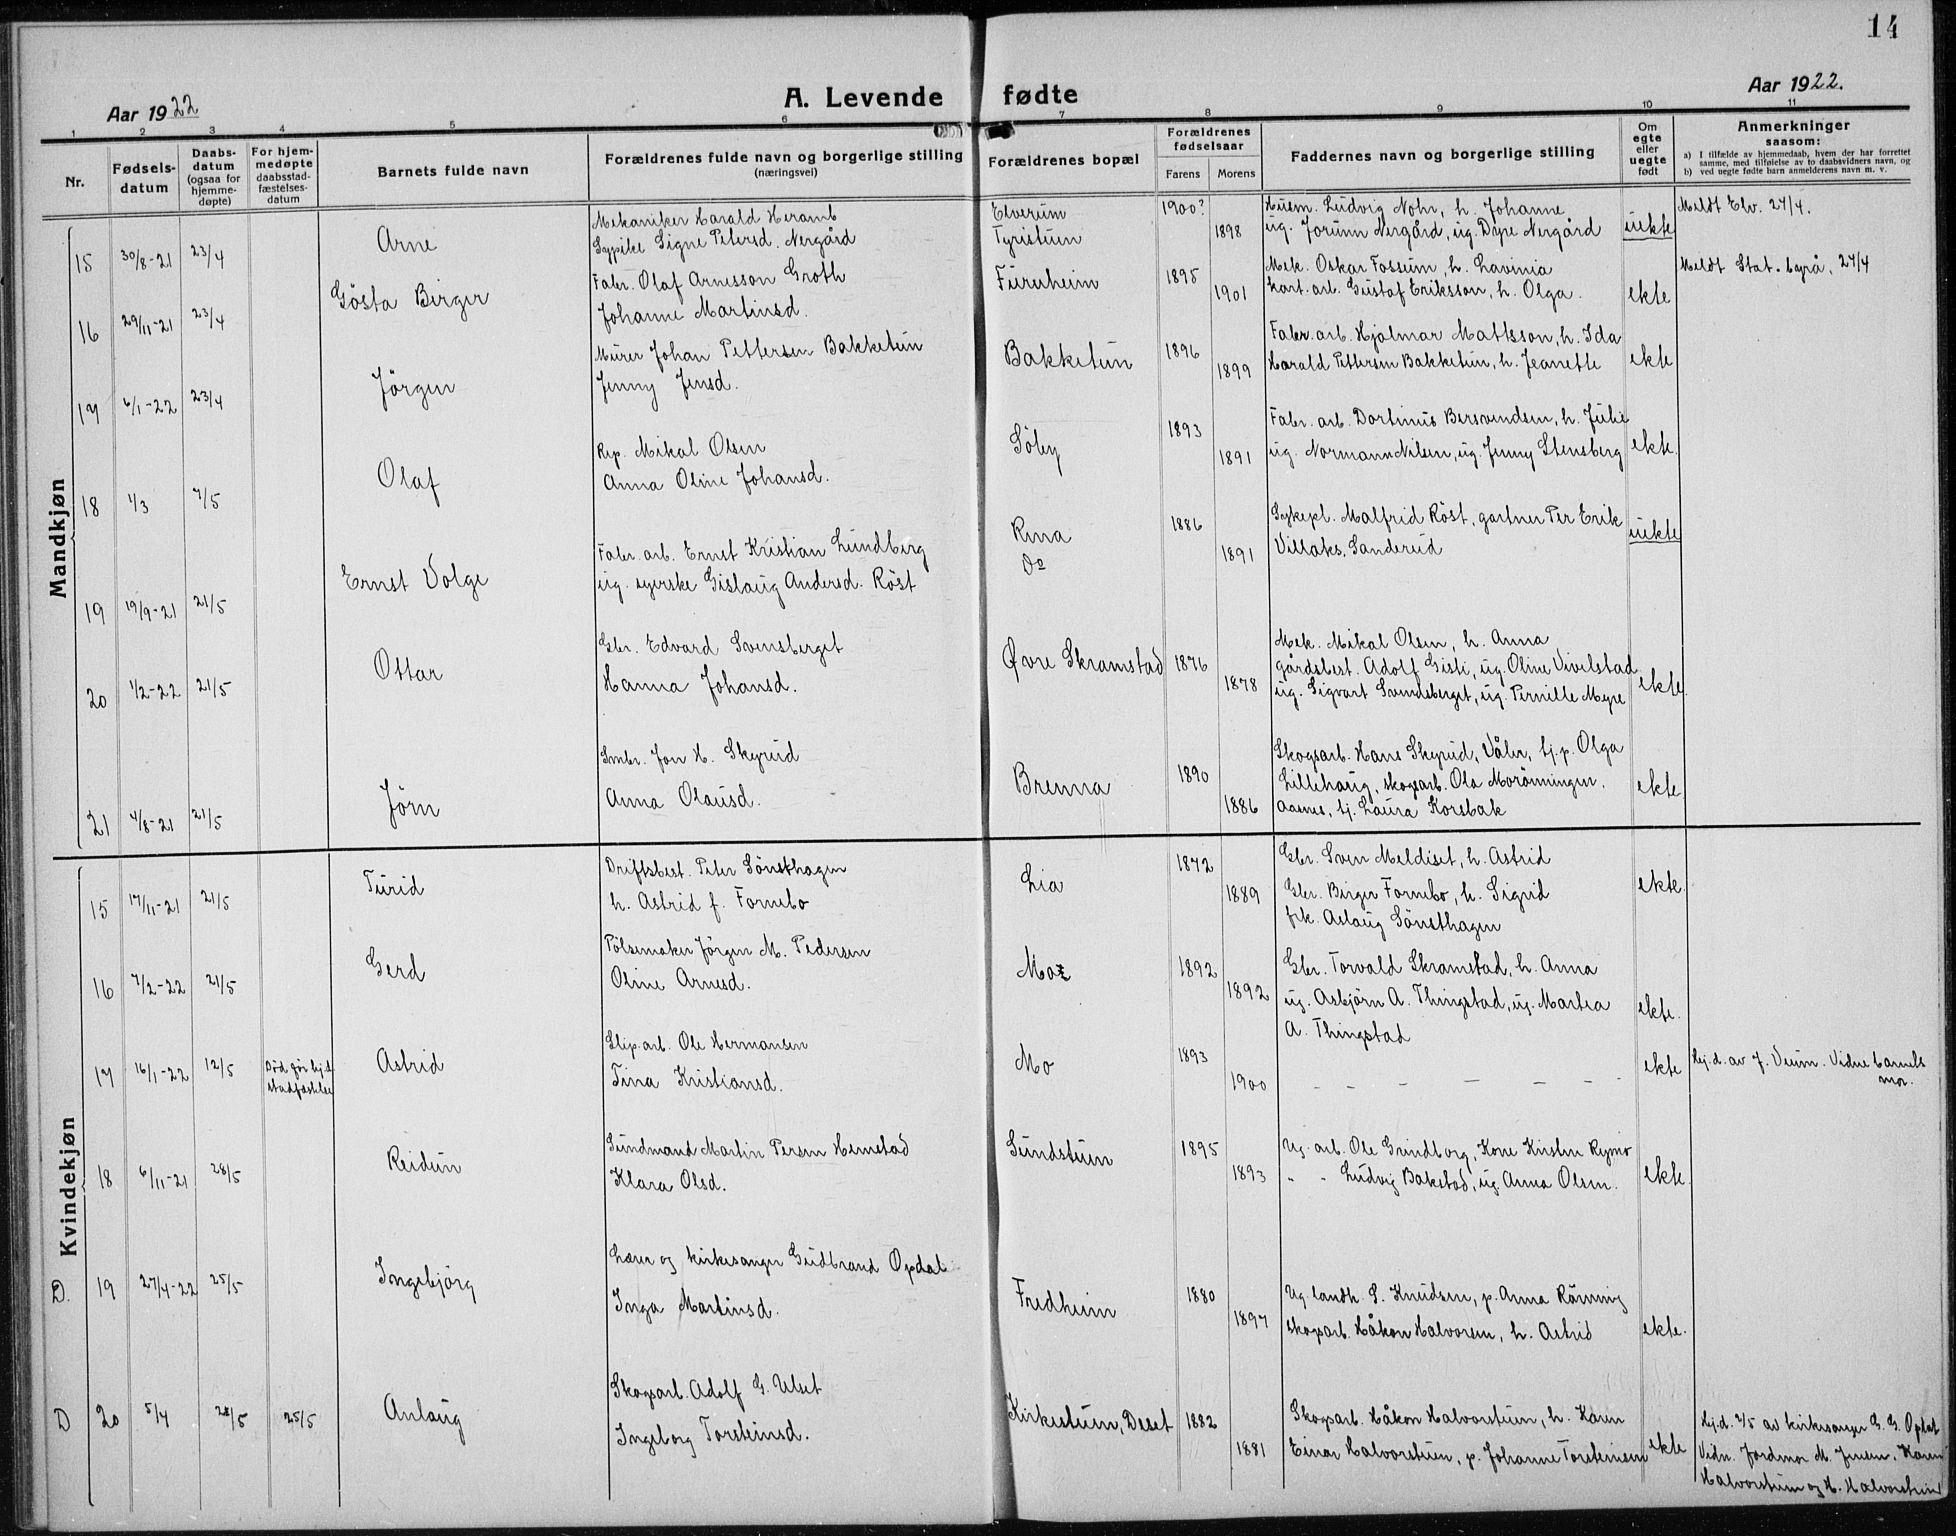 14
Aar 1922
A. Levende fødte
Aar 1922.
1 2 3 4 5 6 7 8 9 10 11
Nr.
Fødsels-
datum
Daabs-
datum
(ogsaa for
hjemme-
døpte)
For hjem-
medøpte
daabsstad-
fæstelses-
datum
Barnets fulde navn
Forældrenes fulde navn og borgerlige stilling
(næringsvei)
Forældrenes bopæl
Forældrenes
fødselsaar
Farens Morens
Faddernes navn og borgerlige stilling
Om
egte
eller
uegte
født
Anmerkninger
saasom:
a) I tilfælde av hjemmedaab, hvem der har forrettet
samme, med tilføielse av to daabsvidners navn, og
b) ved uegte fødte barn anmelderens navn m. v.
Mandkjøn
15 30/8-21 23/4 Arne
Mekaniker Harald Heramb
Sypike Signe Petersd. Nergård
Elverum
Tyristuen
1900? 1898
Husm. Ludvig Nohr, h. Johanne
ug. Jorunn Nergård, ug. Dyre Nergård
uekte
Meldt Elv. 27/4.
16 29/11-21 23/4 Gösta Birger
Fabr. Olaf Arnesson Groth
Johanne Martinsd.
Furuheim
1895 1901
Mek. Oskar Fossum, h. Lavinia
kart. arb. Gustaf Eriksson, h. Olga.
ekte
Meldt Stat. byrå, 27/4
17 6/1-22 23/4 Jörgen
Murer Johan Pettersen Bakketun
Jenny Jensd.
Bakketun
1896 1899
Fabr. arb. Hjalmar Mattsson, h. Ida
Harald Pettersen Bakketun, h. Jeanette
ekte
18 1/3 7/5 Olaf
Rep. Mikal Olsen
Anna Oline Johansd.
Söby
1893 1891
Fabr. arb. Dortinus Bersvendsen, h. Julie
ug. Normann Nilsen, ug. Jenny Stensberg
ekte.
19 19/9-21 21/5 Ernst Volge
Fabr. arb. Ernst Kristian Lundberg
ug. syerske Gislaug Andersd. Röst
Rena
Do
1886 1891
Sykepl. Malfrid Röst, gartner Per Erik
Villaks, Sanderud
uekte
20 1/2-22 21/5 Ottar
Gbr. Edvard Svensberget
Hanna Johansd.
Øvre Skramstad
1876 1878
Mek. Mikal Olsen, h. Anna
gårdsbest. Adolf Gisti, ug. Oline Vivelstad
ug. Sigvart Svendsberget, ug. Pernille Myre
ekte
21 4/8-21 21/5 Jörn
Smbr. Jon H. Skyrud
Anna Olausd.
Brenna
1890 1886
Skogsarb. Hans Skyrud, Våler, tj. p. Olga
Lillehaug, skogsarb. Ola Morönningen.
Aames, tj. Laura Korsbak
ekte
Kvindekjøn
15 17/11-21 21/5 Turid
Driftsbest. Peter Sönsthagen
h. Astrid f. Fornebo
Lia
1872 1889
Gbr. Sven Meldiset, h. Astrid
Gbr. Birger Fornebo, h. Sigrid
frk. Aslaug Sönsthagen
ekte
16 7/2-22 21/5 Gerd
Pölsemaker Jörgen M. Pedersen
Oline Arnesd.
Mo
1892 1892
Gbr. Torvald Skramstad, h. Anna
ug. Asbjörn A. Thingstad, ug. Martea
A. Thingstad
ekte.
17 16/1-22 12/5 Död før hj.d. stadfæstelse Astrid
Slip. arb. Ole Hermansen
Tina Kristiansd.
Mo
1893 1900
- - - - - -
ekte
Hj.d. av J. Veum. Vidne barnets
mor.
18 6/11-21 28/5 Reidun
Sundmand Martin Persen Hemstad
Klara Olsd.
Sundstuen
1895 1893
Ug. arb. Ole Grindborg, Kone Kirsten Rymo
" " Ludvig Bakstad, ug. Anna Olsen.
ekte.
D. 19 27/4-22 25/5 Ingebjörg
Lærer og kirkesanger Gudbrand Opdal
Inga Martinsd.
Fredheim
1880 1897
Ug. landh. S. Knudsen, p. Anna Rönning
Skogsarb. Håkon Halvorsen, h. Astrid
ekte.
D 20 5/4 28/5 25/5 Anlaug
Skogsarb. Adolf G. Ulset
Ingeborg Torsteinsd.
Kirkestuen, Deset
1882 1881
Skogsarb. Håkon Halvorstuen, h. Karen
Einar Halvorstuen, p. Johanne Torsteinsen
ekte
Hj.d. 2/5 av kirkesanger G. G. Opdal
Vidn. Jordmor M. Jensen, Karen
Halvorstuen og H. Halvorstuen